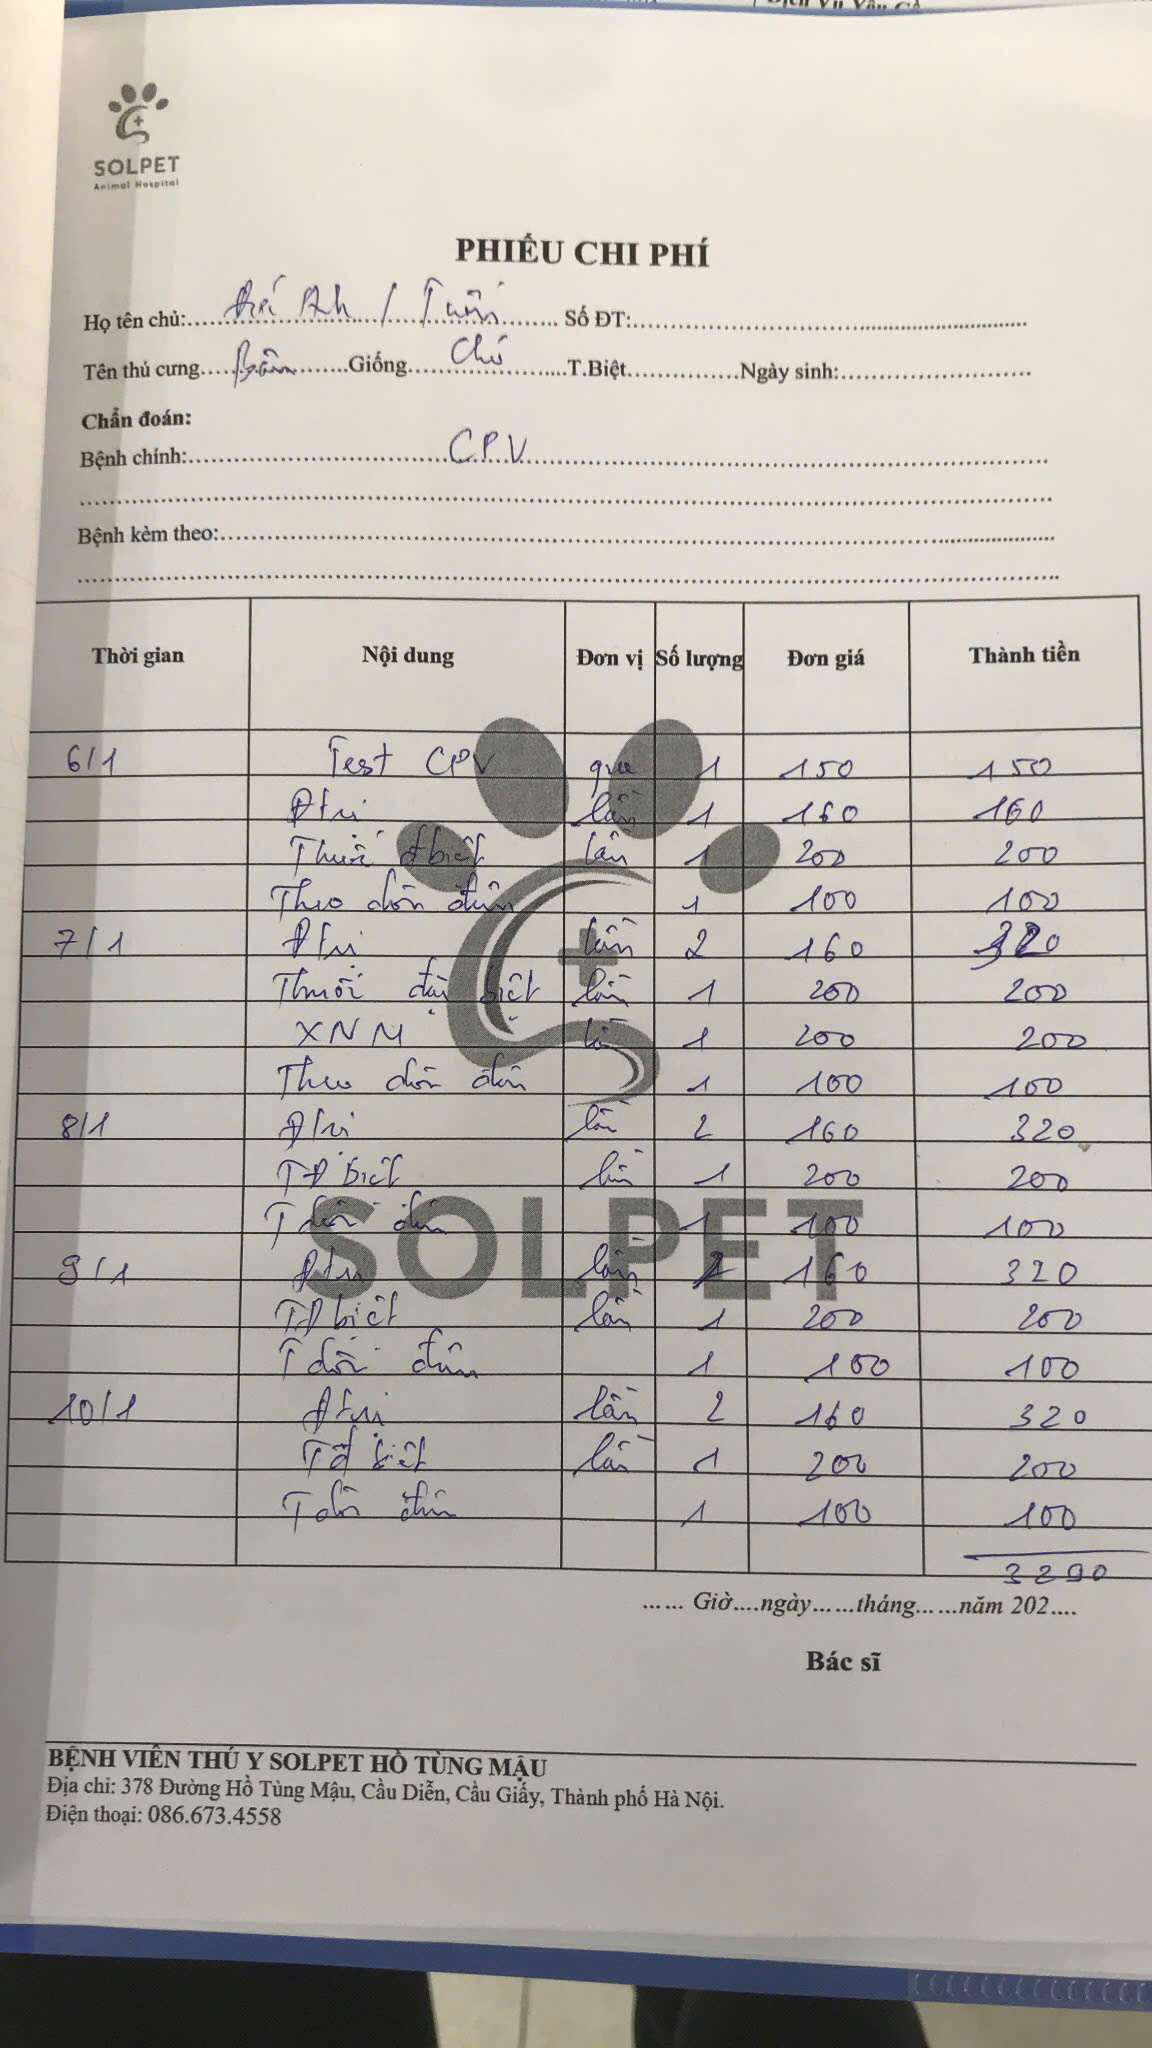 Dịch Vụ
SOLPET
Animal Hospital
PHIẾU CHI PHÍ
Họ tên chủ:........ / Tuấn........ Số ĐT:........
Tên thú cưng........Giống....Chó....T.Biệt........Ngày sinh:........
Chẩn đoán:
Bệnh chính:........CPV........
Bệnh kèm theo:........
Thời gian Nội dung Đơn vị Số lượng Đơn giá Thành tiền
6/1 Test CPV que 1 150 150
Đtrị lần 1 160 160
Thuốc đ biệt lần 1 200 200
Theo dõi đêm 1 100 100
7/1 Đtrị lần 2 160 320
Thuốc đặc biệt lần 1 200 200
XNM lần 1 200 200
Theo dõi đêm 1 100 100
8/1 Đtrị lần 2 160 320
TĐ biệt lần 1 200 200
T dõi đêm 1 100 100
9/1 Đtrị lần 2 160 320
TĐ biệt lần 1 200 200
T dõi đêm 1 100 100
10/1 Đtrị lần 2 160 320
Tđ biệt lần 1 200 200
T dõi đêm 1 100 100
3290
SOLPET
...... Giờ....ngày......tháng......năm 202....
Bác sĩ
BỆNH VIÊN THÚ Y SOLPET HỒ TÙNG MẬU
Địa chỉ: 378 Đường Hồ Tùng Mậu, Cầu Diễn, Cầu Giấy, Thành phố Hà Nội.
Điện thoại: 086.673.4558